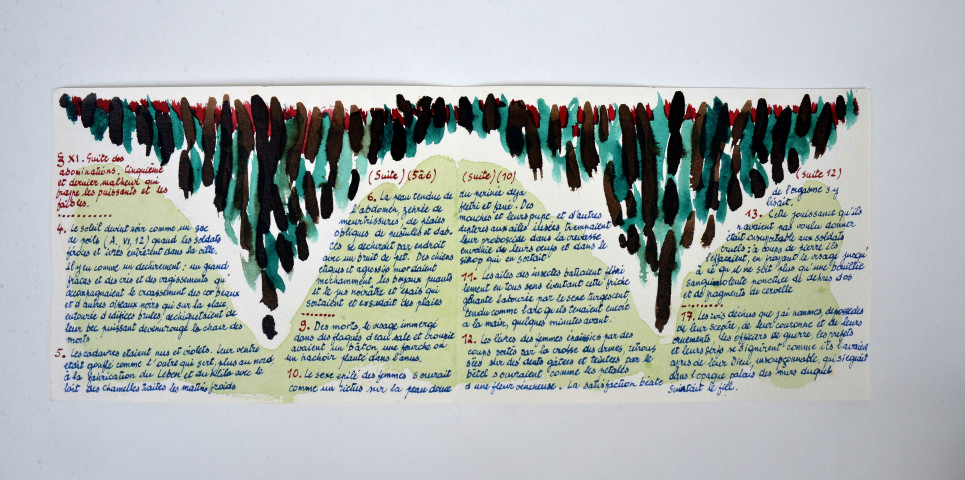 § XI. Suite des
abominations. Cinquième
et dernier malheur qui
frappe les puissants et les
faibles.
4. Le soleil devint noir comme un sac
de poils (A. VI, 12) quand les soldats
et ivres entrèrent dans la ville.
Il y eu comme un déchirement : un grand
fracas et des cris et des vagissements qu'
accompagnaient le croassement des corbeaux
et d'autres oiseaux noirs qui sur la place
entourée d'édifices brulés, déchiquetaient de
leur bec puissant la chair des
morts
5. Les cadavres étaient nus et violets. Leur ventre
était gonflé comme l'outre qui sert, plus au nord,
à la fabrication du leben et du avec le
lait des chamelles traites les matins froids
(Suite) (5 à 6)
6. La peau tendue de
l'abdomen, zébrée de
meurtrissures, de plaies
obliques de pustules et d'ab-
cès se déchirait par endroit
avec un bruit de pet. Des chiens
étiques et agressifs mordaient
méchamment les boyaux puants
et le jus noirâtre et épais qui
sortaient et exsudait des plaies
9. Des morts, le visage immergé
dans des flaques d'eau sale et croupie
avaient un bâton une fourche ou
un hachoir planté dans l'anus.
10. Le sexe épilé des femmes s'ouvrait
comme un rictus sur la peau
(suite) (10)
du périnée déjà
flétri et fané. Des
mouches et leurs pupe et d'autres
diptères aux ailes irisées trempaient
leur proboscide dans la crevasse
enrichie de leurs œufs et dans le
sirop qui en sortait
11. Les ailes des insectes battaient
lement en tous sens éventant cette friche
gluante labourée par le sexe turgescent
tendu comme l'arc qu'ils tenaient encore
à la main, quelques minutes avant.
12. Les lèvres des femmes par des
coups portés par la crosse des armes,
sées sur des dents gâtées et teintées par le
bétel s'ouvraient comme les pétales
d'une fleur vénéneuse. La satisfaction béate
(suite 12)
de l'orgasme s'y
lisait.
13. Cette jouissance qu'ils
n'avaient pas voulu donner
était insupportable aux soldats
: à coups de pierre ils
l'effaçaient, en broyant le visage jusqu'
à ce qu'il ne soit plus qu'une bouillie
sanguinolente ponctuée de débris d'os
et de fragments de cervelle
17. Les rois déchus que j'ai nommés, dépossédés
de leur sceptre, de leur couronne et de leurs
ornements, les officiers de guerre, les préfets
et leurs sbires se signèrent comme ils l'avaient
appris de leur Dieu, insoupçonnable, qui siégeait
dans l'opaque palais des murs duquel
suintait le fiel.